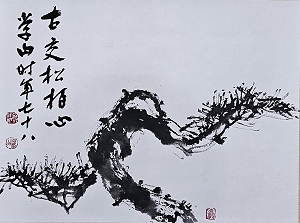 古交松柏心
学山时年七十八